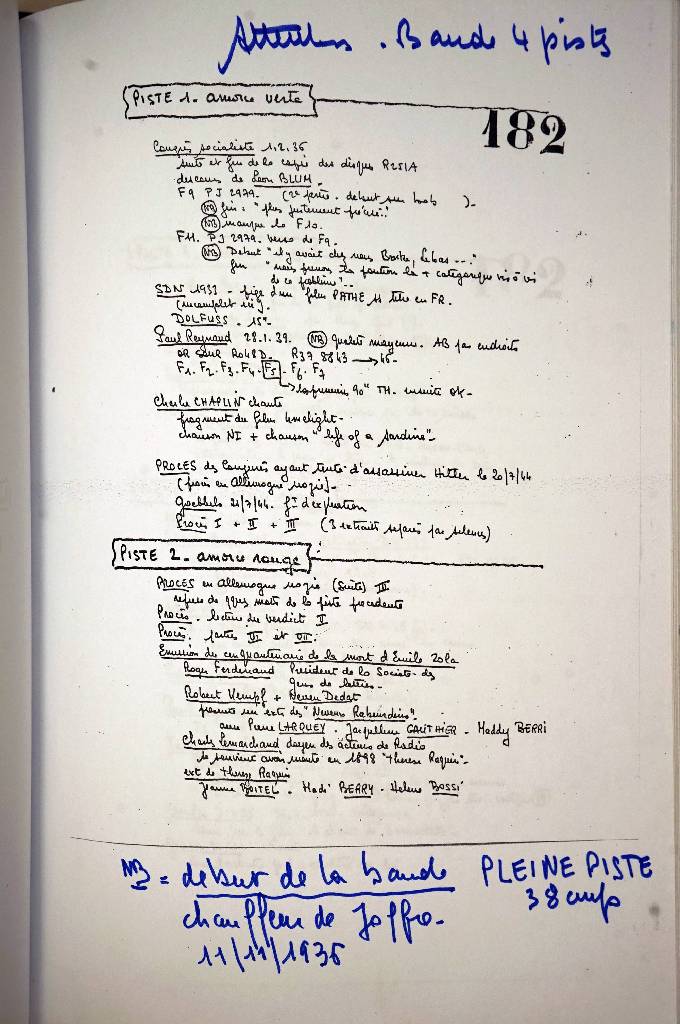 Attention . Bande 4 pistes
PISTE 1. amorce verte
182
Congrès socialiste 1.2.36
suite et fin de la copie des disques R251A
discours de Leon BLUM.
F9 PJ 2979. (2e partie. debut sur bob ).
NB fin: "plus justement
NB manque le F10.
F11. PJ 2979. verso de F9.
NB Debut "il y avait chez nous Lebas ..."
fin "nous prenons la position la + categorique vis à vis
de ce problème".
SDN 1933 - film PATHE
(incomplet
DOLFUSS. 15"
Paul Reynaud 28.1.39. NB Qualité moyenne. AB par endroits
R048D. R37 8843 → 46-
F1. F2. F3. F4. F5. F6. F7
→ les premiers 90" TH. ensuite ok-
Charlie CHAPLIN chante
fragment du film Limelight-
chanson NI + chanson "life of a sardine"-
PROCES des Conjurés ayant tenté d'assassiner Hitler le 20/7/44
(procès en Allemagne nazie)-
Goebbels 21/7/44. d'explication
Procès I + II + III (3 extraits séparés par silences)
PISTE 2. amorce rouge
PROCES en Allemagne nazie (Suite) III
reprise de qques mots de la piste précédente
Procès. lecture du verdict II
Procès. parties VI et VII.
Emission du cinquantenaire de la mort d'Emile Zola
Roger Ferdinand Président de la Société des
gens de lettres-
Robert Kempf +
présente un ext des "Nouveaux Rabourdins"
avec Pierre LARQUEY. Jacqueline GAUTHIER - Maddy BERRI
Charles Lemarchand doyen des acteurs de Radio
se souvient avoir monté en 1898 "Therese Raquin"-
ext de Therese Raquin
Jeanne BOITEL. Madi BERRY. Helene BOSSI
NB = debut de la bande PLEINE PISTE
38 cm/s
chauffeur de Joffre-
11/11/1936